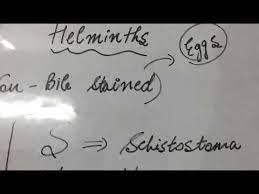 Helminths
Eggs
Non - Bile stained
S ⇒ Schistostoma